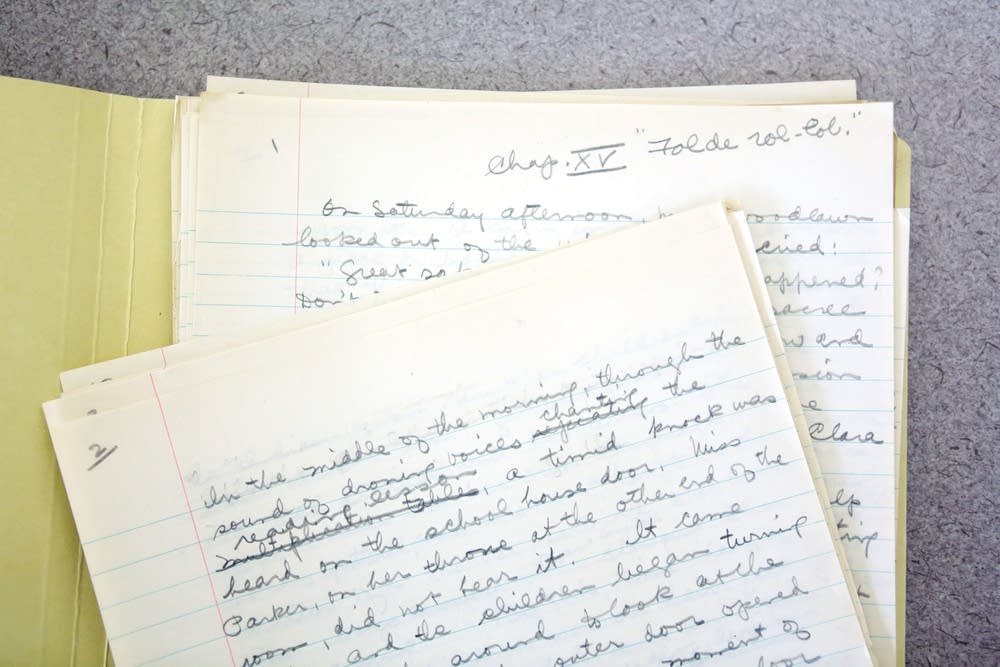 1
Chap. XV "Folde rol-lol."
On Saturday afternoon, oodlawn
looked out of the cried:
"Great so appened?
Don't
acree
w and
sion
e
Clara
lp
ting
2
In the middle of the morning, through the
sound of droning voices chanting the
reading lesson
multiplication tables, a timid knock was
heard on the school house door. Miss
Parker, on her throne at the other end of the
room, did not hear it. It came
and the children began turning
around to look at the
outer door opened
moment of
door